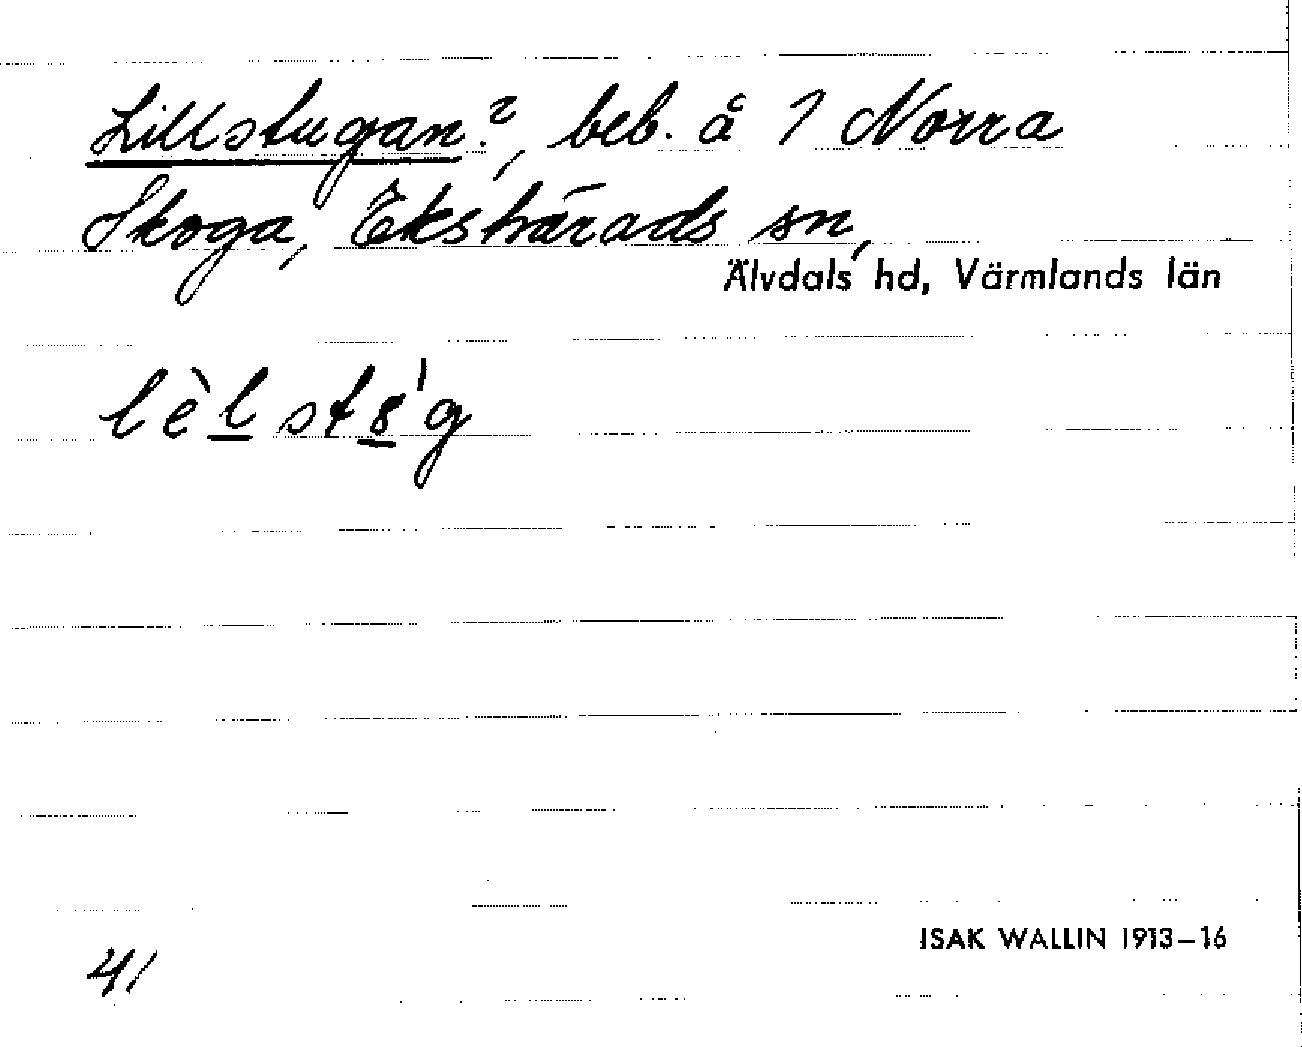 Lillstugan?, beb. å 1 Norra
Skoga, Ekshärads sn,
Älvdals hd, Värmlands län
lèlsts'g
41
ISAK WALLIN 1913–16